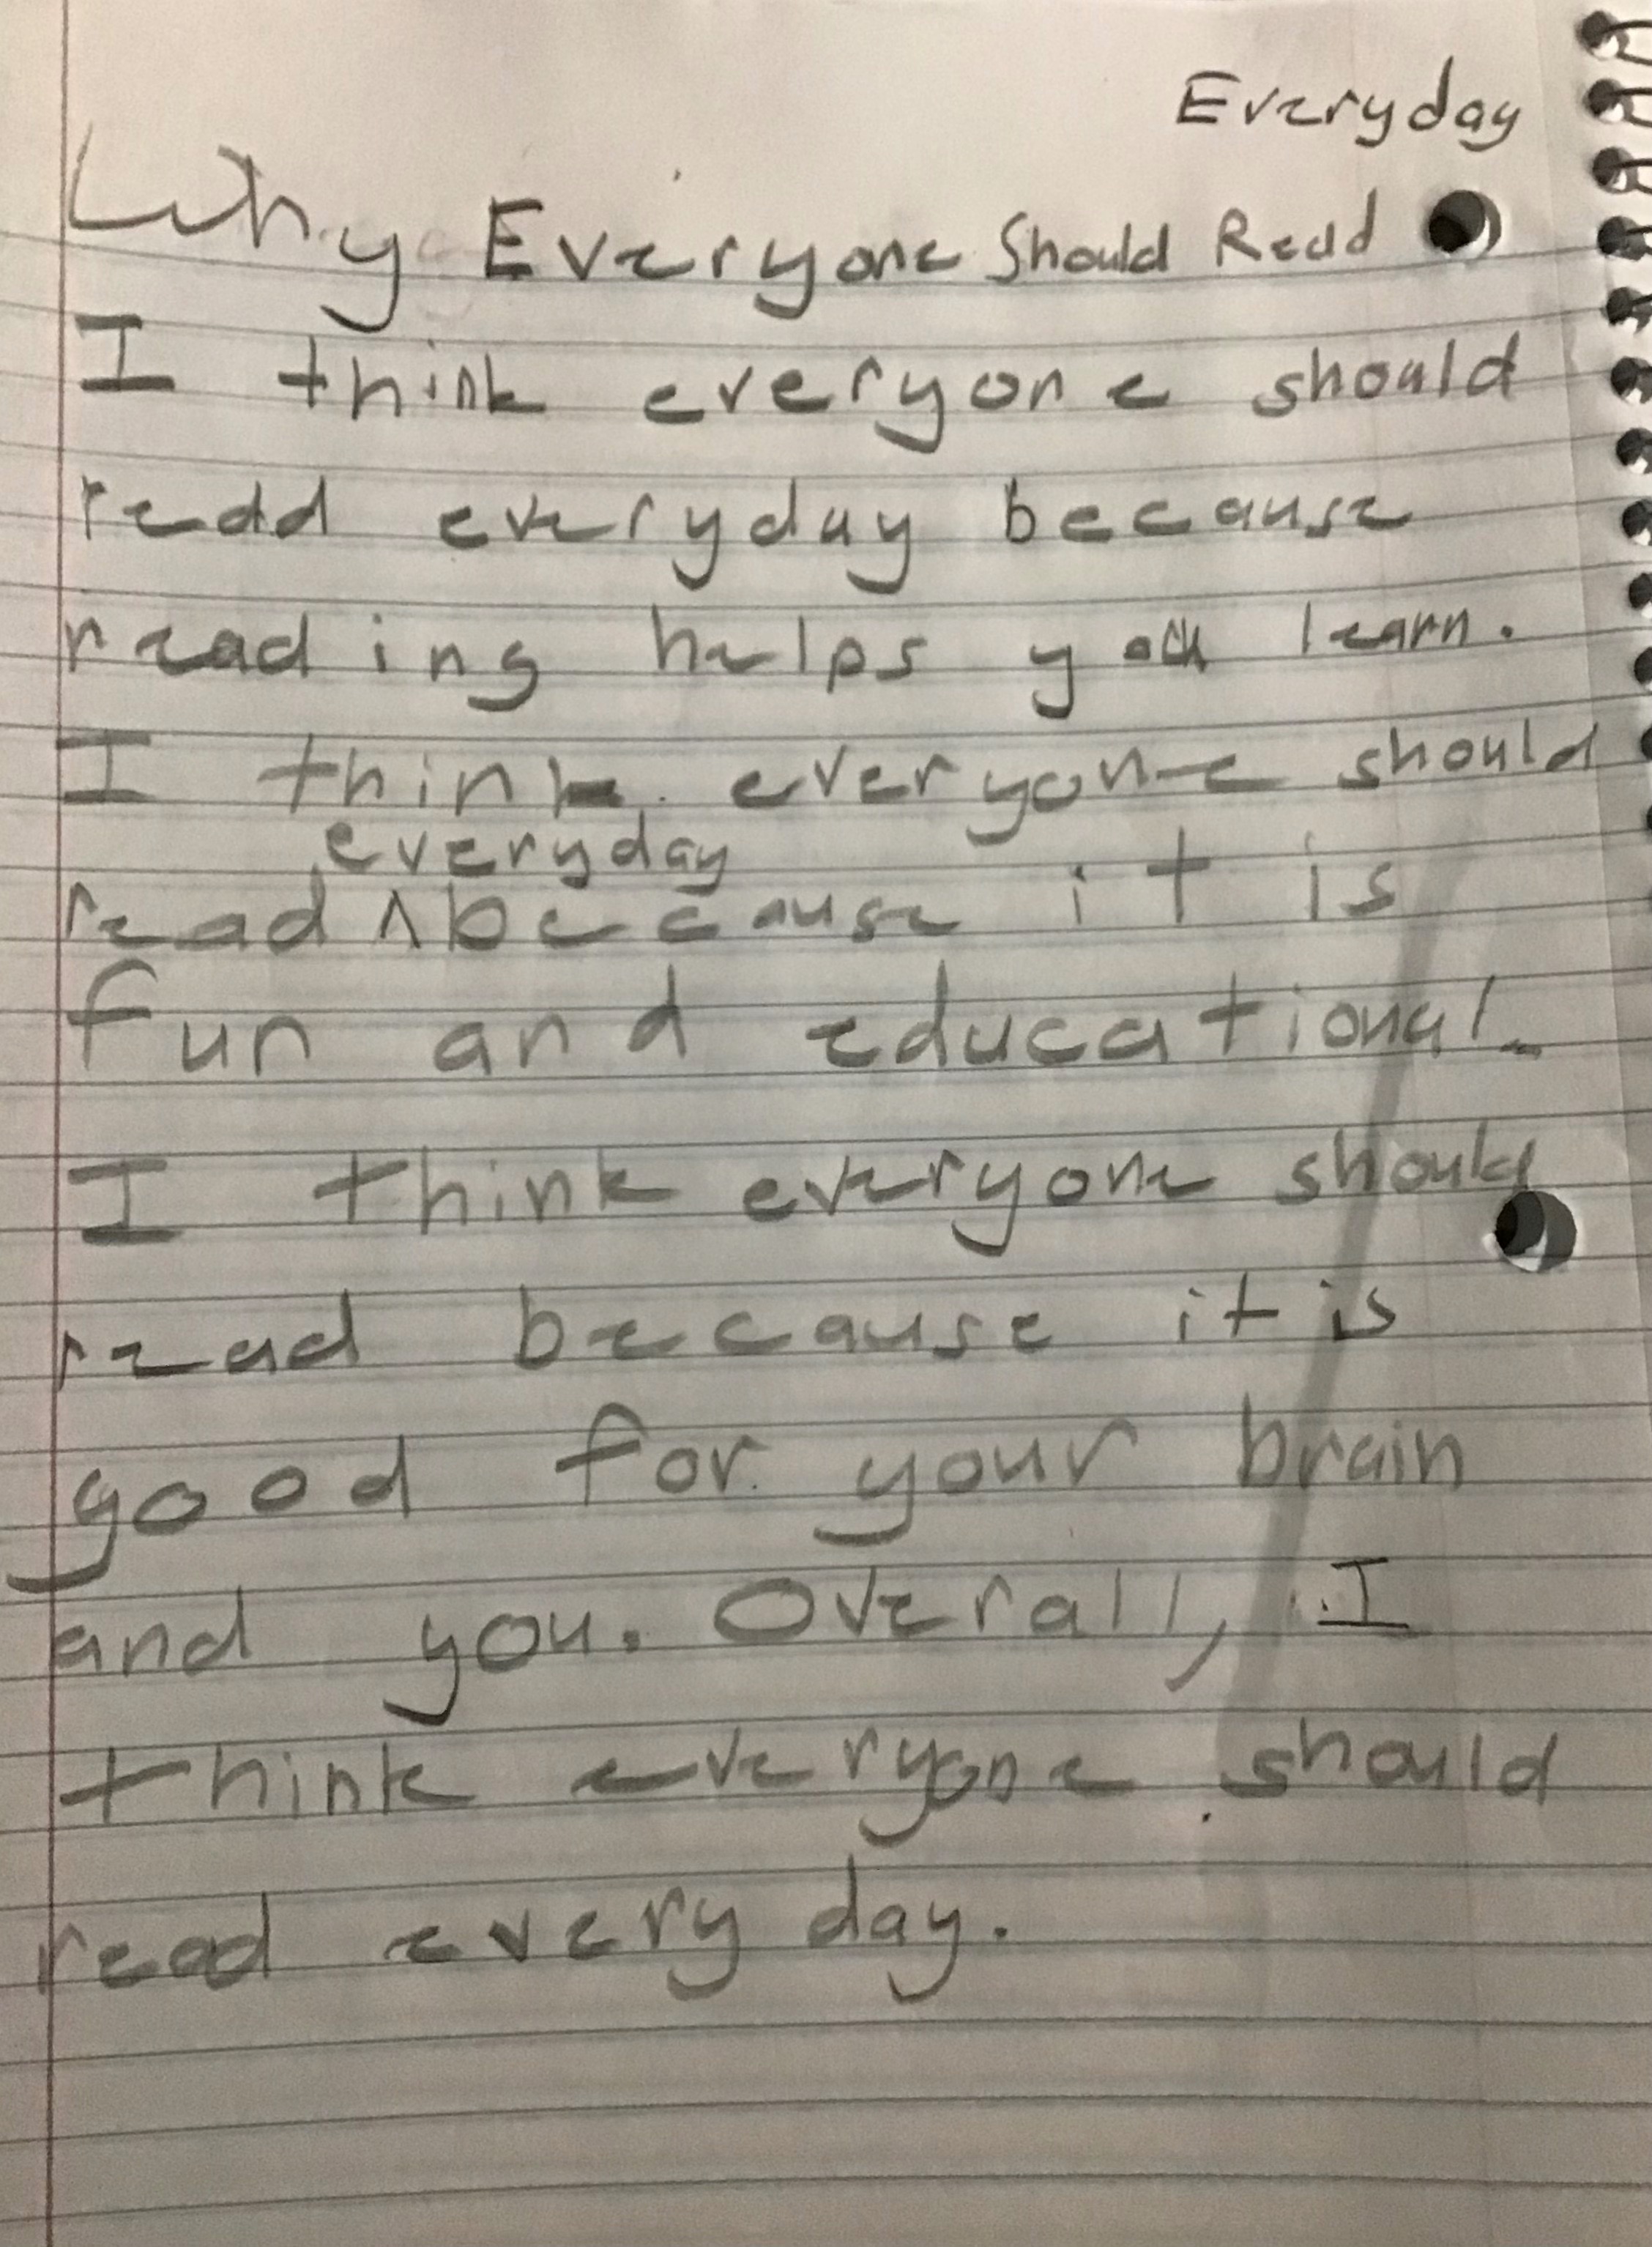 Everyday
Why Everyone Should Read
I think everyone should
read everyday because
reading helps you learn.
I think everyone should
everyday
read ^ because it is
fun and educational.
I think everyone should
read because it is
good for your brain
and you. Overall, I
think everyone should
read every day.